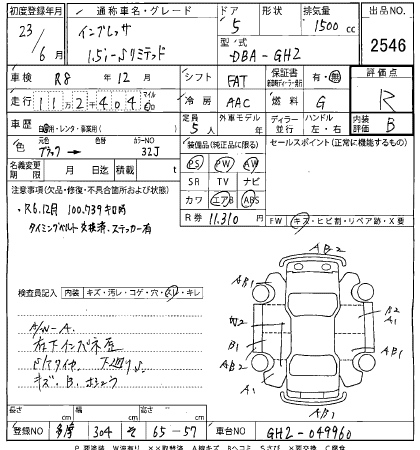 初度登録年月 通称車名・グレード ドア 形状 排気量 出品NO.
23/6月 インプレッサ 1.5i-Sリミテッド 5 1500cc 2546
型式 DBA-GH2
車検 R8年12月 シフト FAT 保証書 有・無 評価点
走行 112404 冷房 AAC 燃料 G R
車歴 自家用・レンタ・事業用( ) 定員 5人 外車モデル 年 ディーラー 並行 ハンドル 左・右 内装評価 B
色 元色 ブラック 色替 カラーNO 32J 装備品(純正品に限る) セールスポイント(正常に機能するもの)
PS PW AW
名義変更期限 月 日 積載 t SR TV ナビ
注意事項(欠品・修復・不具合箇所および状態) カワ エアB ABS
・R6.12月 100,739キロ時 R券 11,310 FW キズ・ヒビ割・リペア跡・X要
タイミングベルト交換済、ステッカー有
AB2
検査員記入 内装 キズ・汚レ・コゲ・穴・スレ・キレ
A/W-A.
キズ、B、
AB1 B2 A1 W2 B1 AB1 AB2 A1 AB1
長さ cm 幅 cm 高さ cm
登録NO 多摩 304 そ 65-57 車台NO GH2-049960